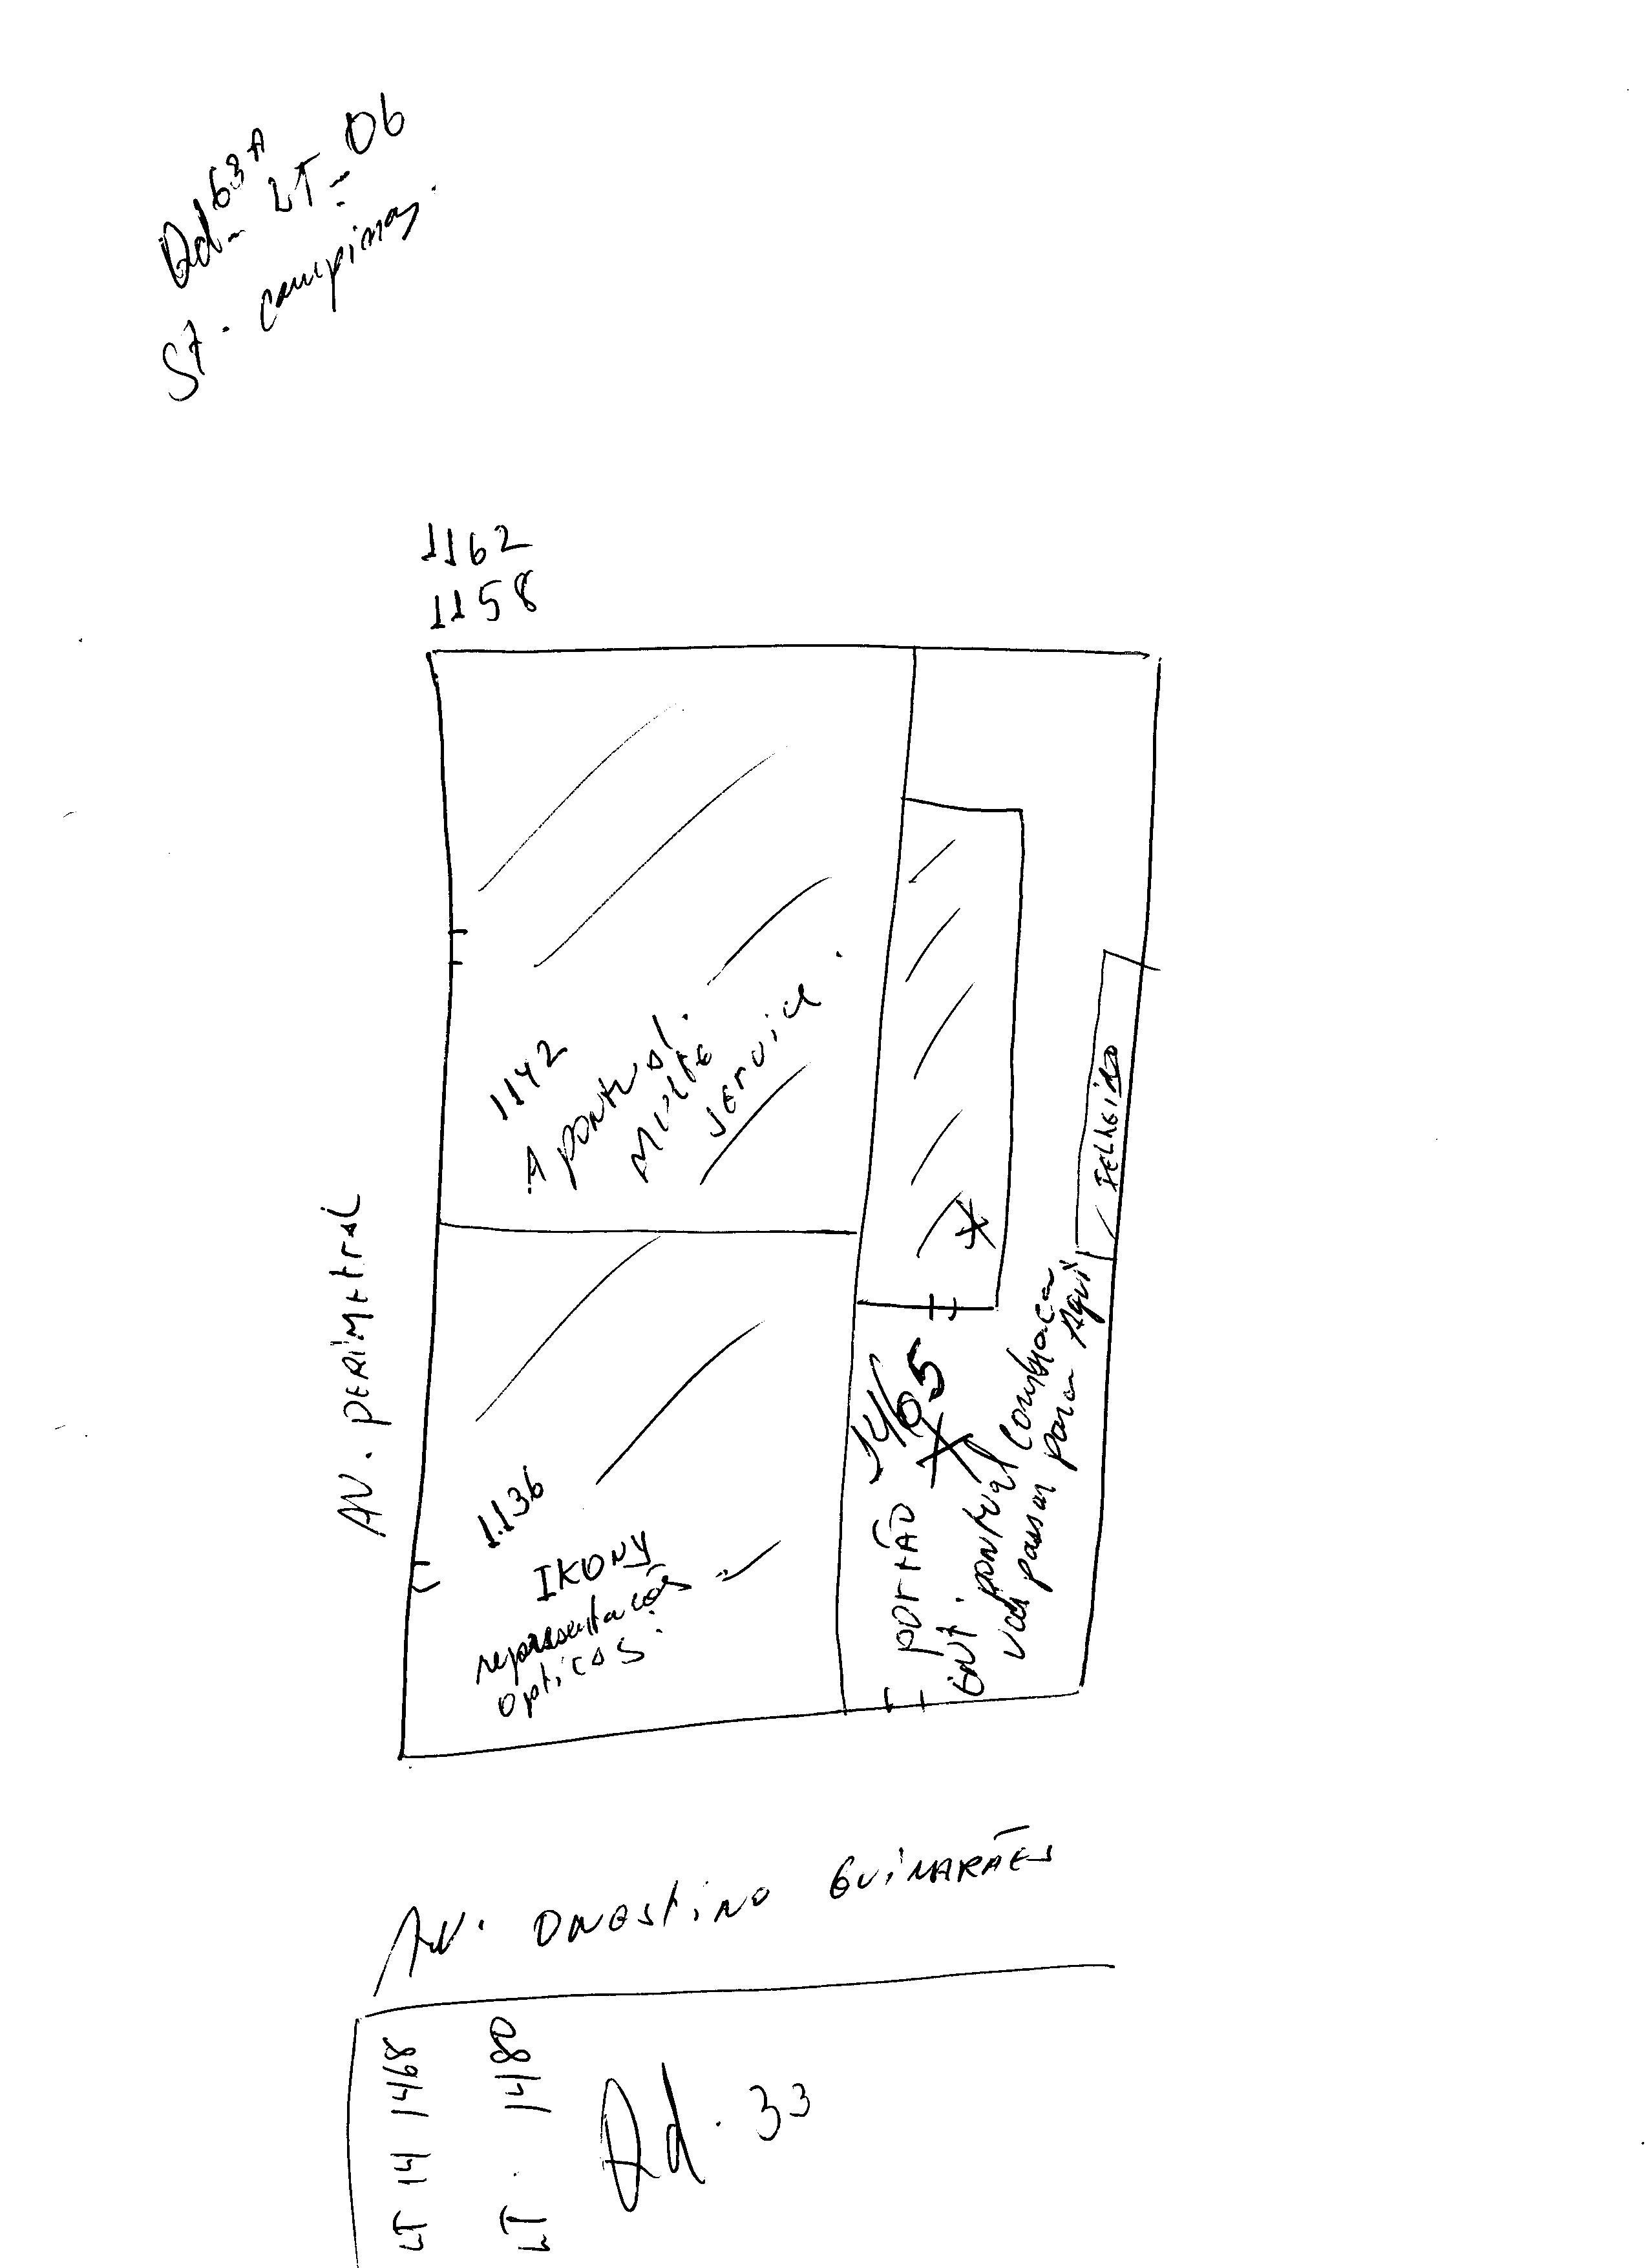 Qd- 63A LT- 06
ST. campinas.
1162
1158
1142
A pontual.
Multe
service.
AV. perimetral
1136
IKONY
representacões
opticas.
1465
portão
Ent. pontual
vai passar para Aqui
AV. ONESTINO GUIMARÃES
LT 14 1468
LT. 1480
Qd. 33